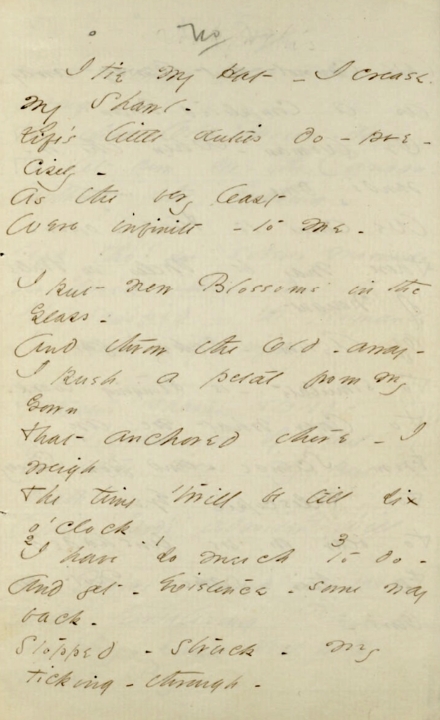 No
I tie my Hat - I crease
my Shawl -
Life's little duties do - pre-
cisely -
As the very least
Were infinite - to me -
I put new Blossoms in the
Glass -
And throw the Old - away -
I push a petal from my
Gown
That anchored there - I
weigh
The time 'twill be till six
o'clock
2 1 3
I have so much to do -
And yet - Existence - some way
back -
Stopped - struck - my
ticking - through -